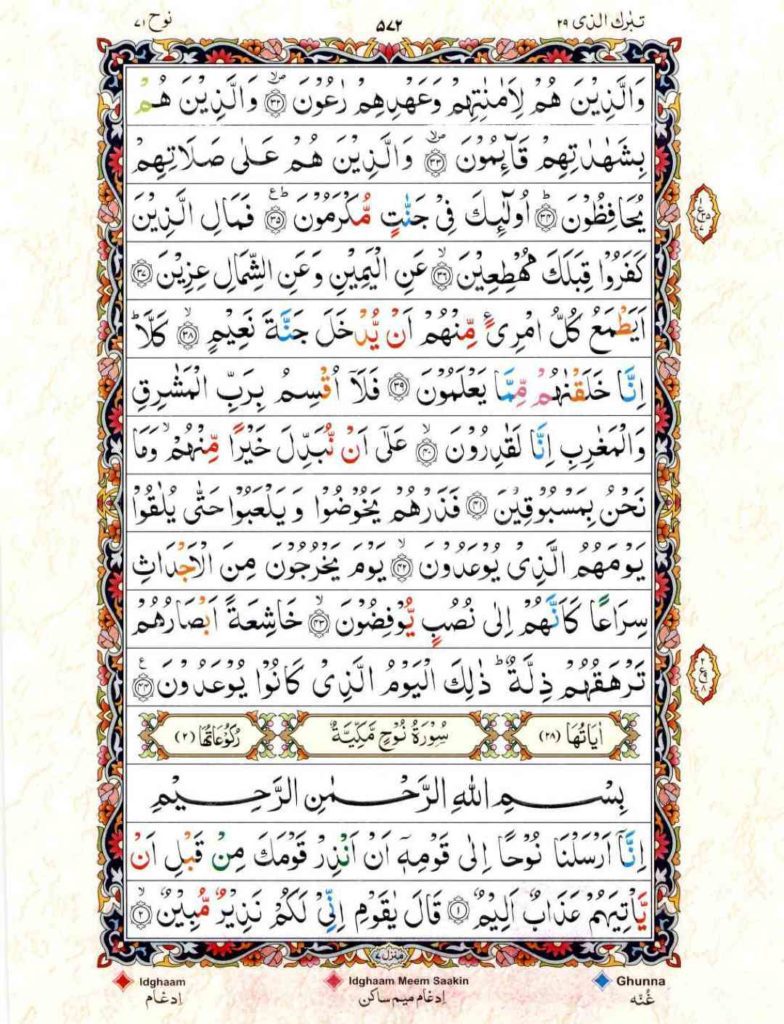 تبٰرك الذی ٢٩ ۵۷۲ نوح ٧١
وَالَّذِيْنَ هُمْ لِاَمٰنٰتِهِمْ وَعَهْدِهِمْ رٰعُوْنَ ﴿٣٢﴾ وَالَّذِيْنَ هُمْ
بِشَهٰدٰتِهِمْ قَآئِمُوْنَ ﴿٣٣﴾ وَالَّذِيْنَ هُمْ عَلٰى صَلَاتِهِمْ
يُحَافِظُوْنَ ﴿٣٤﴾ اُولٰٓئِكَ فِىْ جَنّٰتٍ مُّكْرَمُوْنَ ﴿٣٥﴾ فَمَالِ الَّذِيْنَ
كَفَرُوْا قِبَلَكَ مُهْطِعِيْنَ ﴿٣٦﴾ عَنِ الْيَمِيْنِ وَعَنِ الشِّمَالِ عِزِيْنَ ﴿٣٧﴾
اَيَطْمَعُ كُلُّ امْرِئٍ مِّنْهُمْ اَنْ يُّدْخَلَ جَنَّةَ نَعِيْمٍ ﴿٣٨﴾ كَلَّا
اِنَّا خَلَقْنٰهُمْ مِّمَّا يَعْلَمُوْنَ ﴿٣٩﴾ فَلَاۤ اُقْسِمُ بِرَبِّ الْمَشٰرِقِ
وَالْمَغٰرِبِ اِنَّا لَقٰدِرُوْنَ ﴿٤٠﴾ عَلٰٓى اَنْ نُّبَدِّلَ خَيْرًا مِّنْهُمْ وَمَا
نَحْنُ بِمَسْبُوْقِيْنَ ﴿٤١﴾ فَذَرْهُمْ يَخُوْضُوْا وَيَلْعَبُوْا حَتّٰى يُلٰقُوْا
يَوْمَهُمُ الَّذِىْ يُوْعَدُوْنَ ﴿٤٢﴾ يَوْمَ يَخْرُجُوْنَ مِنَ الْاَجْدَاثِ
سِرَاعًا كَاَنَّهُمْ اِلٰى نُصُبٍ يُّوْفِضُوْنَ ﴿٤٣﴾ خَاشِعَةً اَبْصَارُهُمْ
تَرْهَقُهُمْ ذِلَّةٌ ؕ ذٰلِكَ الْيَوْمُ الَّذِىْ كَانُوْا يُوْعَدُوْنَ ﴿٤٤﴾
اٰيَاتُهَا (٢٨) سُوْرَةُ نُوْحٍ مَّكِّيَّةٌ رُكُوْعَاتُهَا (٢)
بِسْمِ اللهِ الرَّحْمٰنِ الرَّحِيْمِ
اِنَّاۤ اَرْسَلْنَا نُوْحًا اِلٰى قَوْمِهٖۤ اَنْ اَنْذِرْ قَوْمَكَ مِنْ قَبْلِ اَنْ
يَّاْتِيَهُمْ عَذَابٌ اَلِيْمٌ ﴿١﴾ قَالَ يٰقَوْمِ اِنِّىْ لَكُمْ نَذِيْرٌ مُّبِيْنٌ ﴿٢﴾
منزل ٧
Idghaam Idghaam Meem Saakin Ghunna
اِدغام اِدغام میم ساکن غُنّه